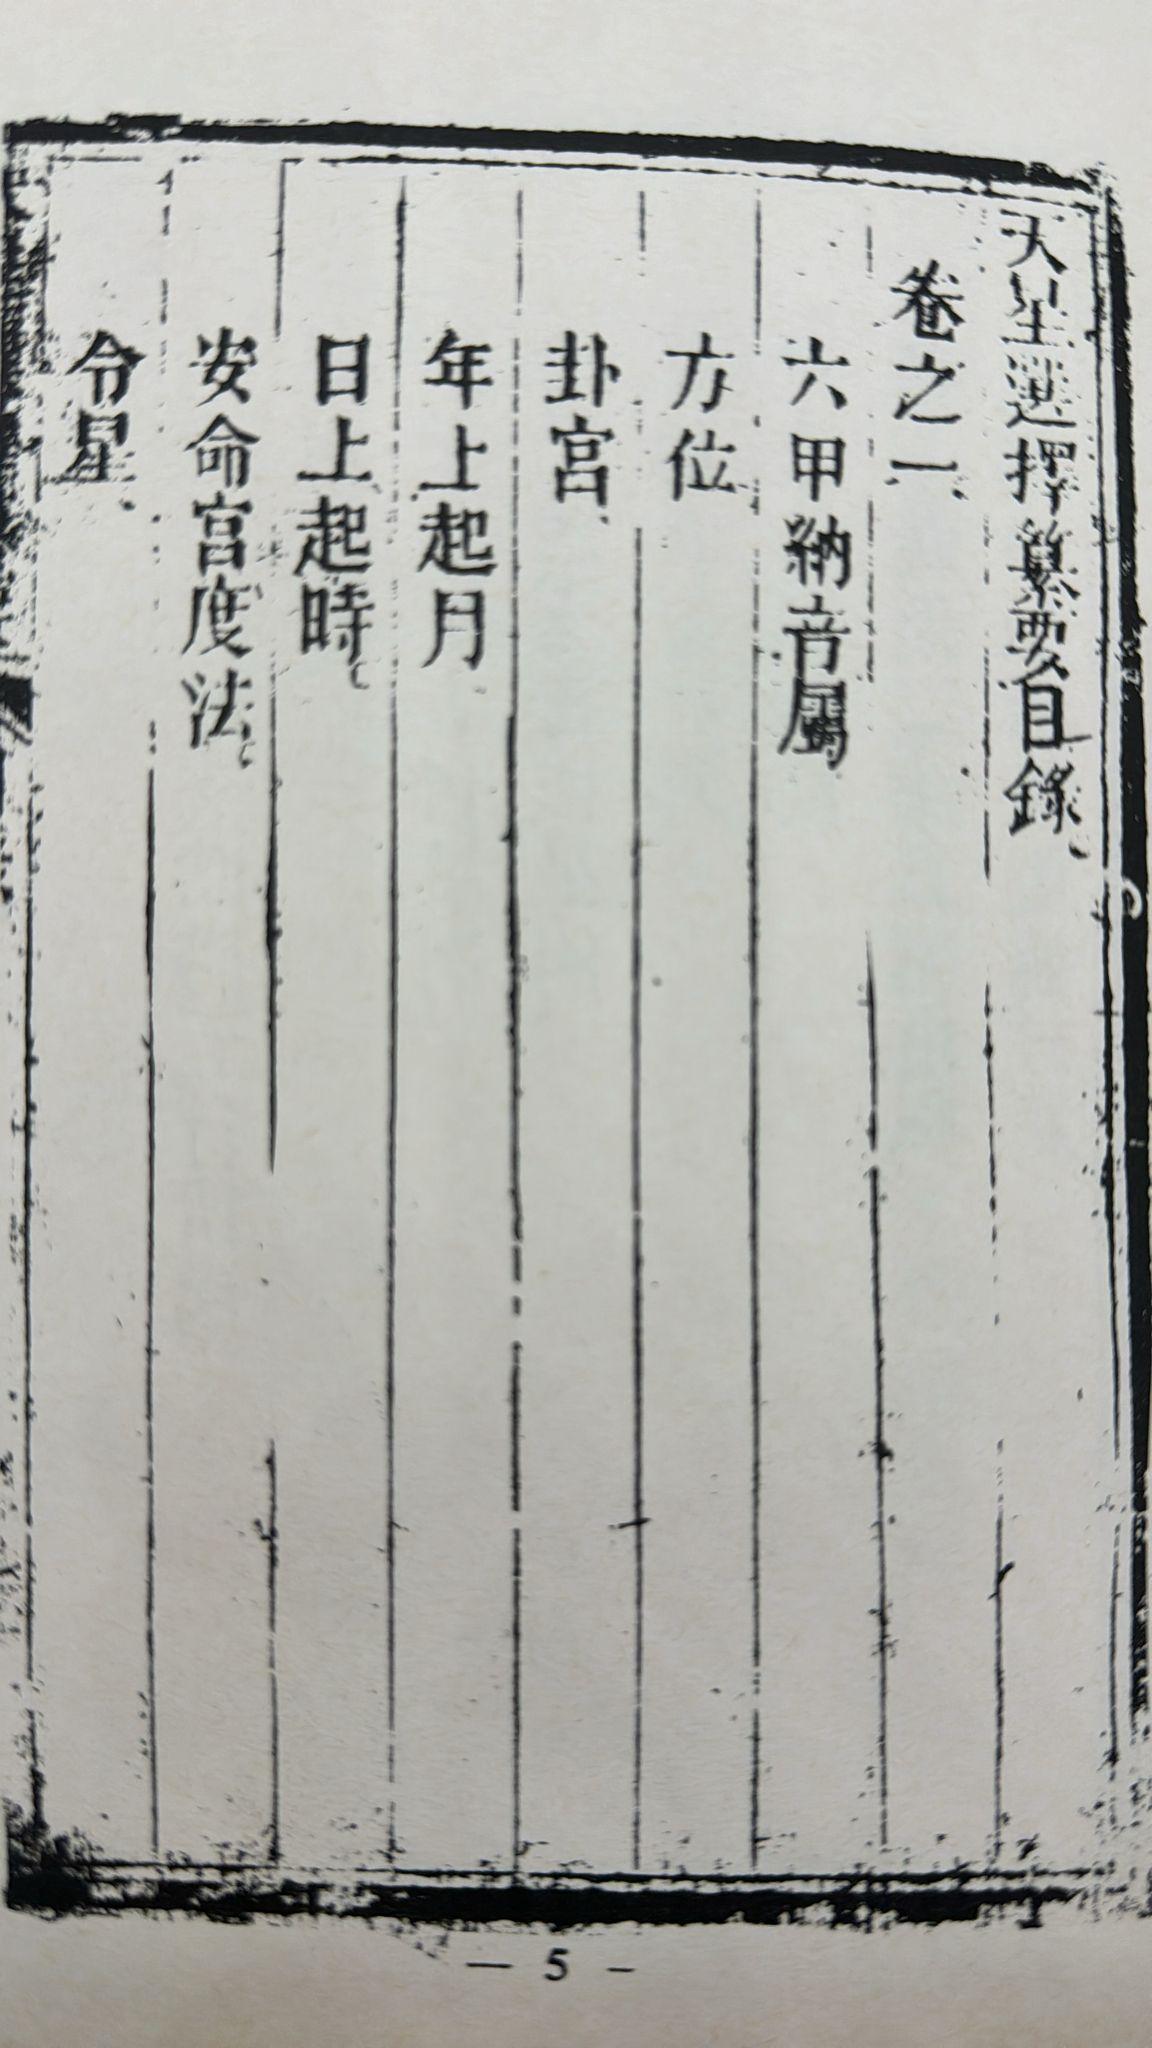 天星選擇纂要目錄
卷之一
六甲納音屬
方位
卦宮
年上起月
日上起時
安命宮度法
令星
— 5 –